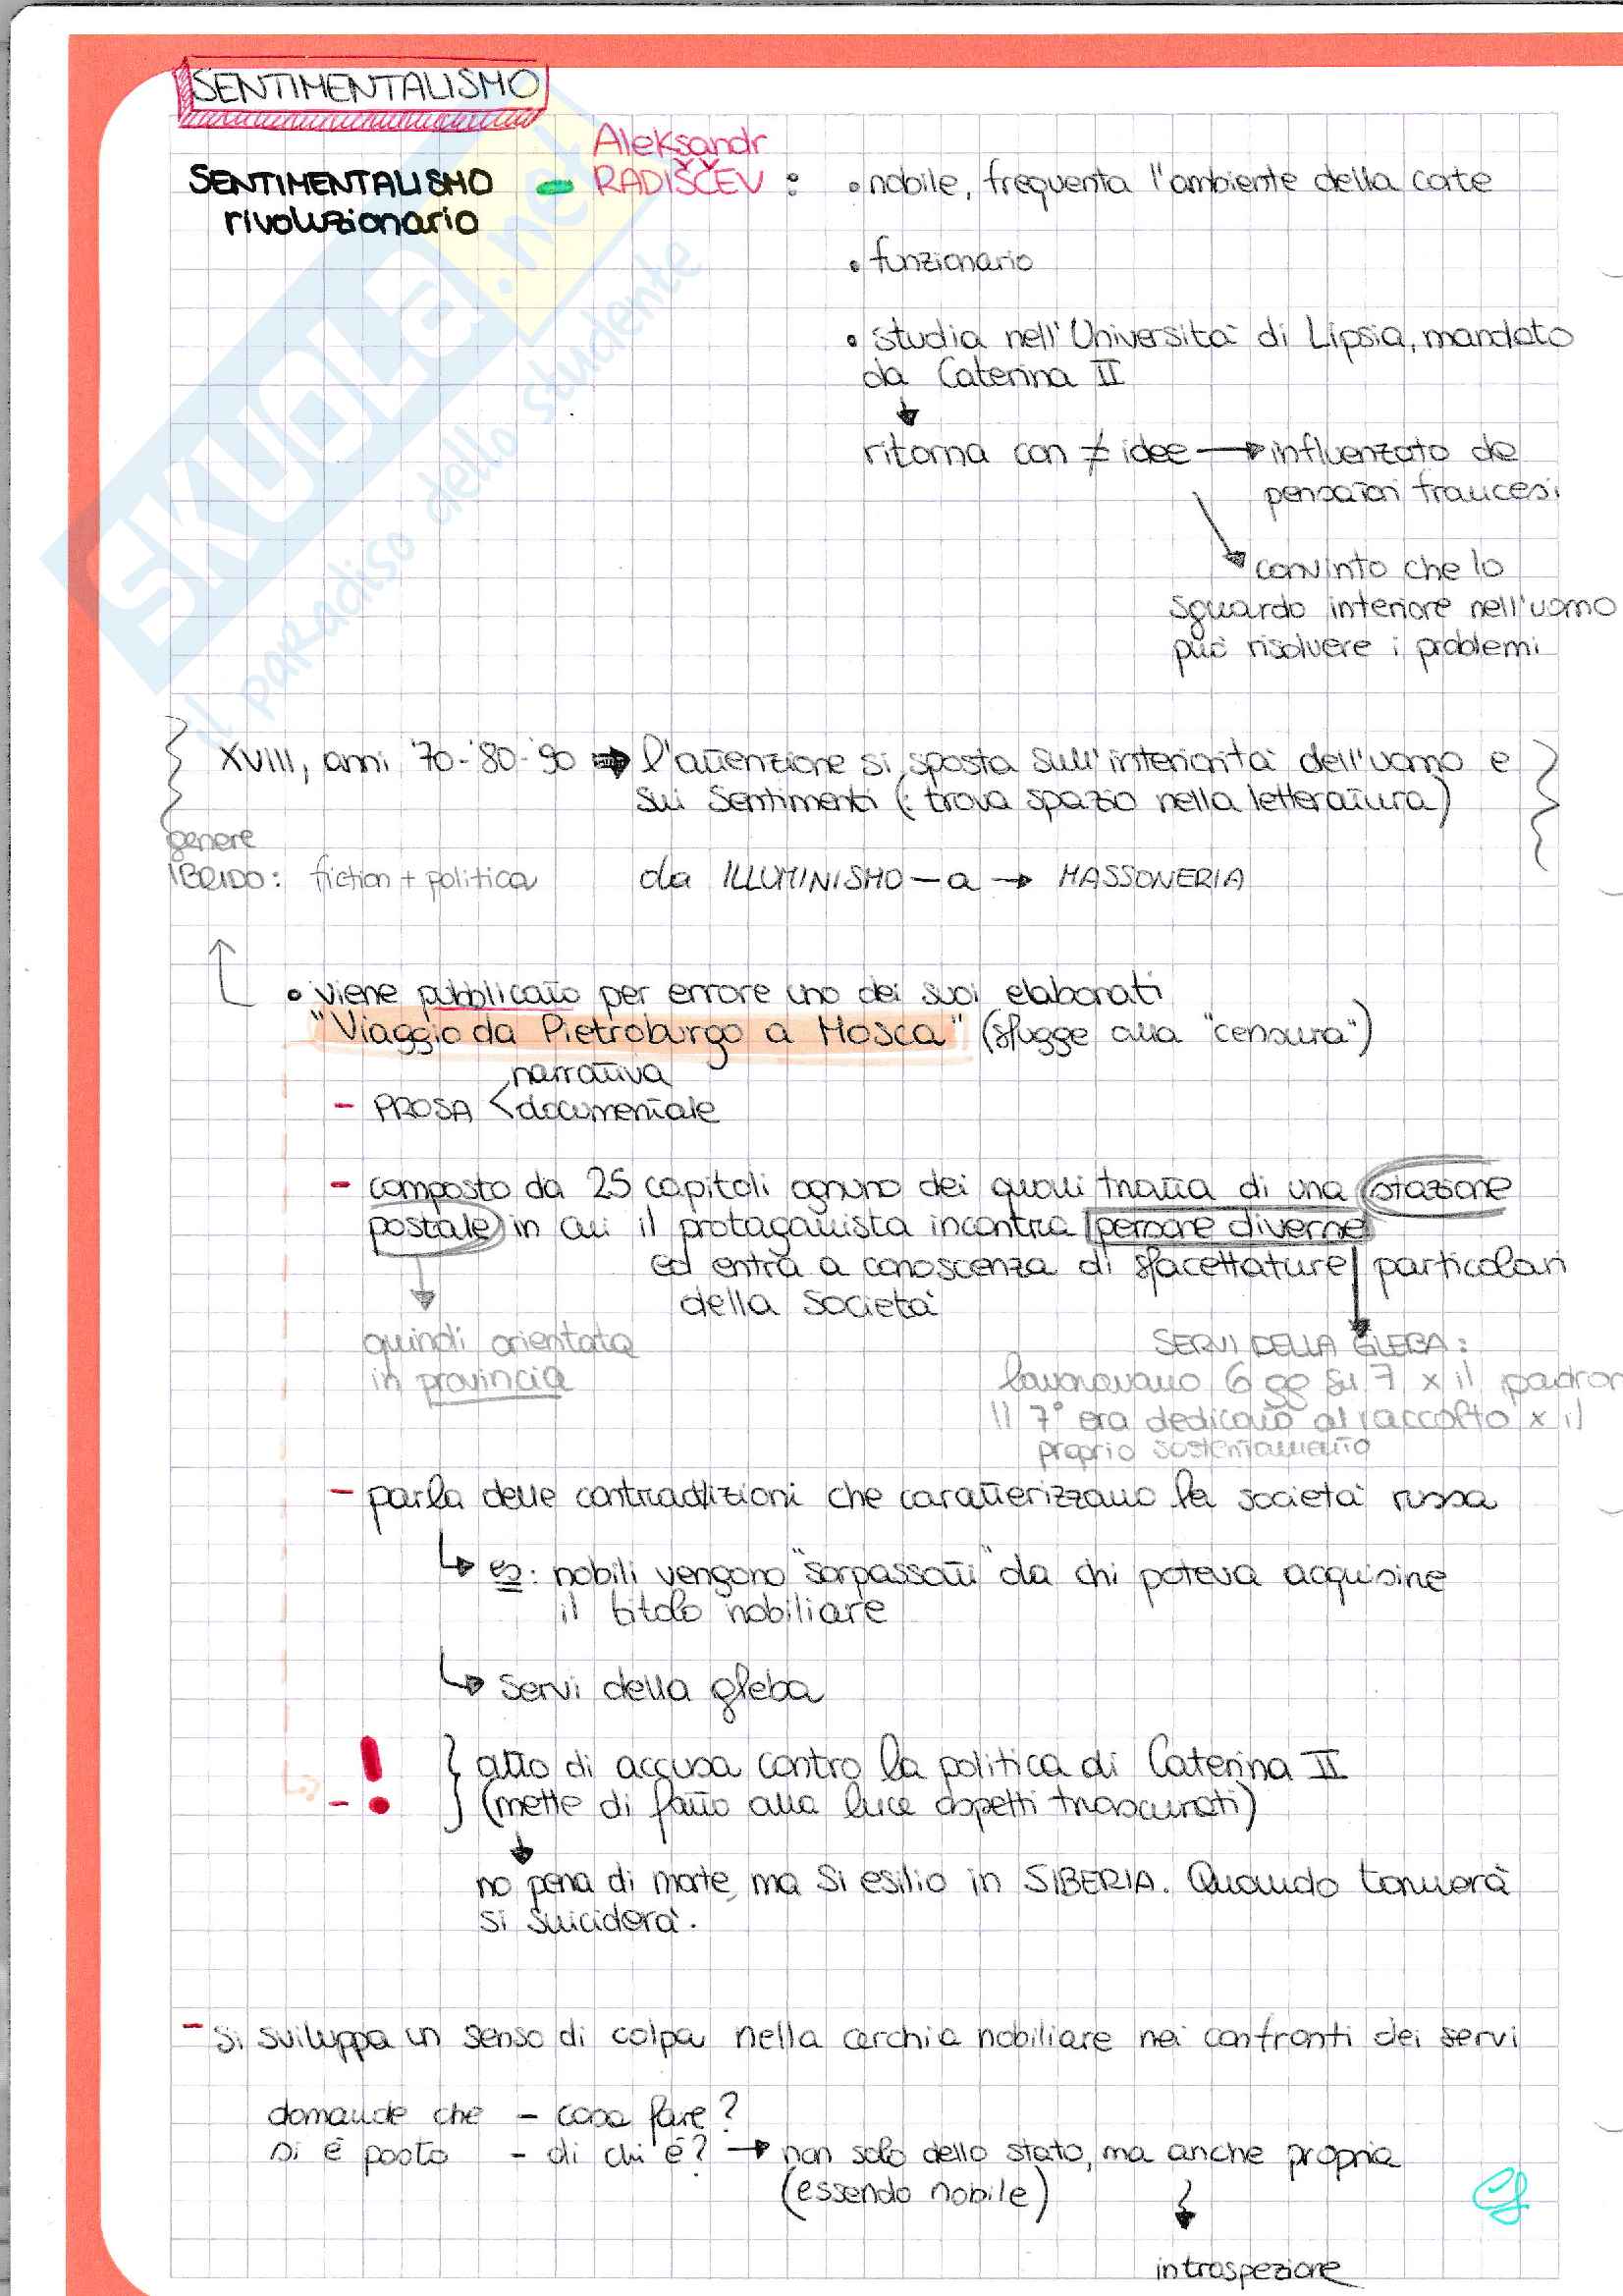 SENTIMENTALISMO
Aleksandr
SENTIMENTALISMO - RADIŠČEV : • nobile, frequenta l'ambiente della corte
rivoluzionario
• funzionario
• studia nell'Università di Lipsia, mandato
da Caterina II
ritorna con ≠ idee → influenzato da
pensatori francesi
convinto che lo
sguardo interiore nell'uomo
può risolvere i problemi
XVIII, anni '70-'80-'90 ⇒ l'attenzione si sposta sull'interiorità dell'uomo e
sui sentimenti (: trova spazio nella letteratura)
genere
IBRIDO: fiction + politica
da ILLUMINISMO - a → MASSONERIA
• viene pubblicato per errore uno dei suoi elaborati
"Viaggio da Pietroburgo a Mosca" (sfugge alla "censura")
narrativa
- PROSA < documentale
- composto da 25 capitoli ognuno dei quali tratta di una stazione
postale in cui il protagonista incontra persone diverse
ed entra a conoscenza di sfaccettature particolari
della società
quindi orientata
in provincia
SERVI DELLA GLEBA:
lavoravano 6 gg su 7 x il padron
Il 7° era dedicato al raccolto x il
proprio sostentamento
- parla delle contraddizioni che caratterizzano la società russa
↳ es: nobili vengono "sorpassati" da chi poteva acquisire
il titolo nobiliare
↳ servi della gleba
- ! } atto di accusa contro la politica di Caterina II
(mette di fatto alla luce aspetti trascurati)
no pena di morte, ma si esilio in SIBERIA. Quando tornerà
si suiciderà.
- si sviluppa un senso di colpa nella cerchia nobiliare nei confronti dei servi
domande che - cosa fare?
si è posto - di chi è? → non solo dello stato, ma anche propria
(essendo nobile)
introspezione
SKUOLA.net
il paradiso dello studente